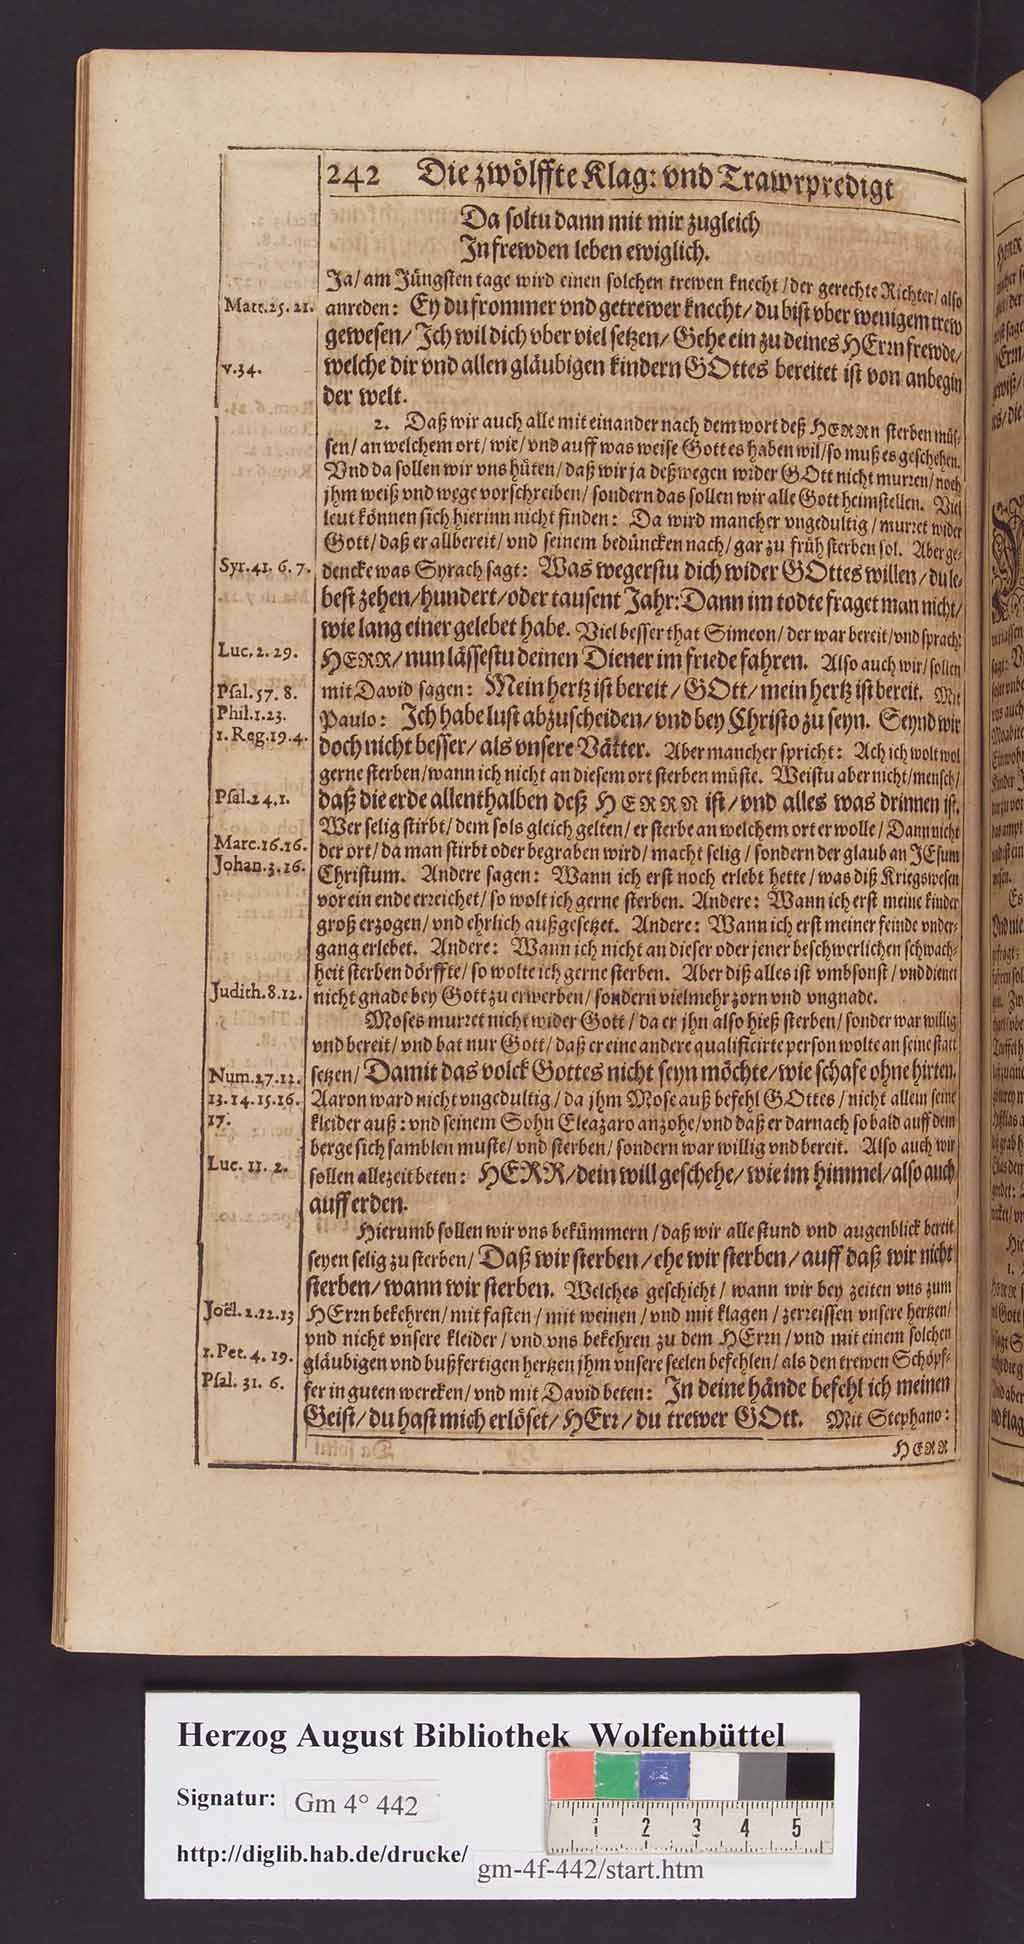 242 Die zwölffte Klag: vnd Trawrpredigt
Da soltu dann mit mir zugleich
In frewden leben ewiglich.
Ja/ am Jüngsten tage wird einen solchen trewen knecht/ der gerechte Richter/ also
Matt. 25. 21. anreden: Ey du frommer vnd getrewer knecht/ du bist vber wenigem trew
gewesen/ Ich wil dich vber viel setzen/ Gehe ein zu deines HErrn frewde/
v. 34. welche dir vnd allen gläubigen kindern GOttes bereitet ist von anbegin
der welt.
2. Daß wir auch alle mit einander nach dem wort deß HERRn sterben müs-
sen/ an welchem ort/ wie/ vnd auff was weise Gott es haben wil/ so muß es geschehen.
Vnd da sollen wir vns hüten/ daß wir ja deßwegen wider GOtt nicht murren/ noch
jhm weiß vnd wege vorschreiben/ sondern das sollen wir alle Gott heimstellen. Viel
leut können sich hierinn nicht finden: Da wird mancher vngedultig/ murret wider
Gott/ daß er allbereit/ vnd seinem bedüncken nach/ gar zu früh sterben sol. Aber ge-
Syr. 41. 6. 7. dencke was Syrach sagt: Was wegerstu dich wider GOttes willen/ du le-
best zehen/ hundert/ oder tausent Jahr: Dann im todte fraget man nicht/
wie lang einer gelebet habe. Viel besser that Simeon/ der war bereit/ vnd sprach:
Luc. 2. 29. HERR/ nun lässestu deinen Diener im friede fahren. Also auch wir/ sollen
Psal. 57. 8. mit David sagen: Mein hertz ist bereit/ GOtt/ mein hertz ist bereit. Mit
Phil. 1. 23. Paulo: Ich habe lust abzuscheiden/ vnd bey Christo zu seyn. Seynd wir
1. Reg. 19. 4. doch nicht besser/ als vnsere Vätter. Aber mancher spricht: Ach ich wolt wol
gerne sterben/ wann ich nicht an diesem ort sterben müste. Weistu aber nicht/ mensch/
Psal. 24. 1. daß die erde allenthalben deß HERRN ist/ vnd alles was drinnen ist.
Wer selig stirbt/ dem sols gleich gelten/ er sterbe an welchem ort er wolle/ Dann nicht
Marc. 16. 16. der ort/ da man stirbt oder begraben wird/ macht selig/ sondern der glaub an JEsum
Johan. 3. 16. Christum. Andere sagen: Wann ich erst noch erlebt hette/ was diß Kriegswesen
vor ein ende erreichet/ so wolt ich gerne sterben. Andere: Wann ich erst meine kinder
groß erzogen/ vnd ehrlich außgesetzet. Andere: Wann ich erst meiner feinde vnder-
gang erlebet. Andere: Wann ich nicht an dieser oder jener beschwerlichen schwach-
heit sterben dörffte/ so wolte ich gerne sterben. Aber diß alles ist vmbsonst/ vnd dienet
Judith. 8. 12. nicht gnade bey Gott zu erwerben/ sondern vielmehr zorn vnd vngnade.
Moses murret nicht wider Gott/ da er jhn also hieß sterben/ sonder war willig
vnd bereit/ vnd bat nur Gott/ daß er eine andere qualificirte person wolte an seine statt
Num. 27. 12. setzen/ Damit das volck Gottes nicht seyn möchte/ wie schafe ohne hirten.
13. 14. 15. 16. Aaron ward nicht vngedultig/ da jhm Mose auß befehl GOttes/ nicht allein seine
17. kleider auß: vnd seinem Sohn Eleazaro anzohe/ vnd daß er darnach so bald auff dem
berge sich samblen muste/ vnd sterben/ sondern war willig vnd bereit. Also auch wir
Luc. 11. 2. sollen allezeit beten: HERR/ dein will geschehe/ wie im himmel/ also auch
auff erden.
Hierumb sollen wir vns bekümmern/ daß wir alle stund vnd augenblick bereit
seyen selig zu sterben/ Daß wir sterben/ ehe wir sterben/ auff daß wir nicht
sterben/ wann wir sterben. Welches geschicht/ wann wir bey zeiten vns zum
Joël. 2. 12. 13 HErrn bekehren/ mit fasten/ mit weinen/ vnd mit klagen/ zerreissen vnsere hertzen/
vnd nicht vnsere kleider/ vnd vns bekehren zu dem HErrn/ vnd mit einem solchen
1. Pet. 4. 19. gläubigen vnd bußfertigen hertzen jhm vnsere seelen befehlen/ als den trewen Schöpf-
Psal. 31. 6. fer in guten wercken/ vnd mit David beten: In deine hände befehl ich meinen
Geist/ du hast mich erlöset/ HErr/ du trewer GOtt. Mit Stephano:
HERR
Herzog August Bibliothek Wolfenbüttel
Signatur: Gm 4° 442
http://diglib.hab.de/drucke/ gm-4f-442/start.htm
1 2 3 4 5